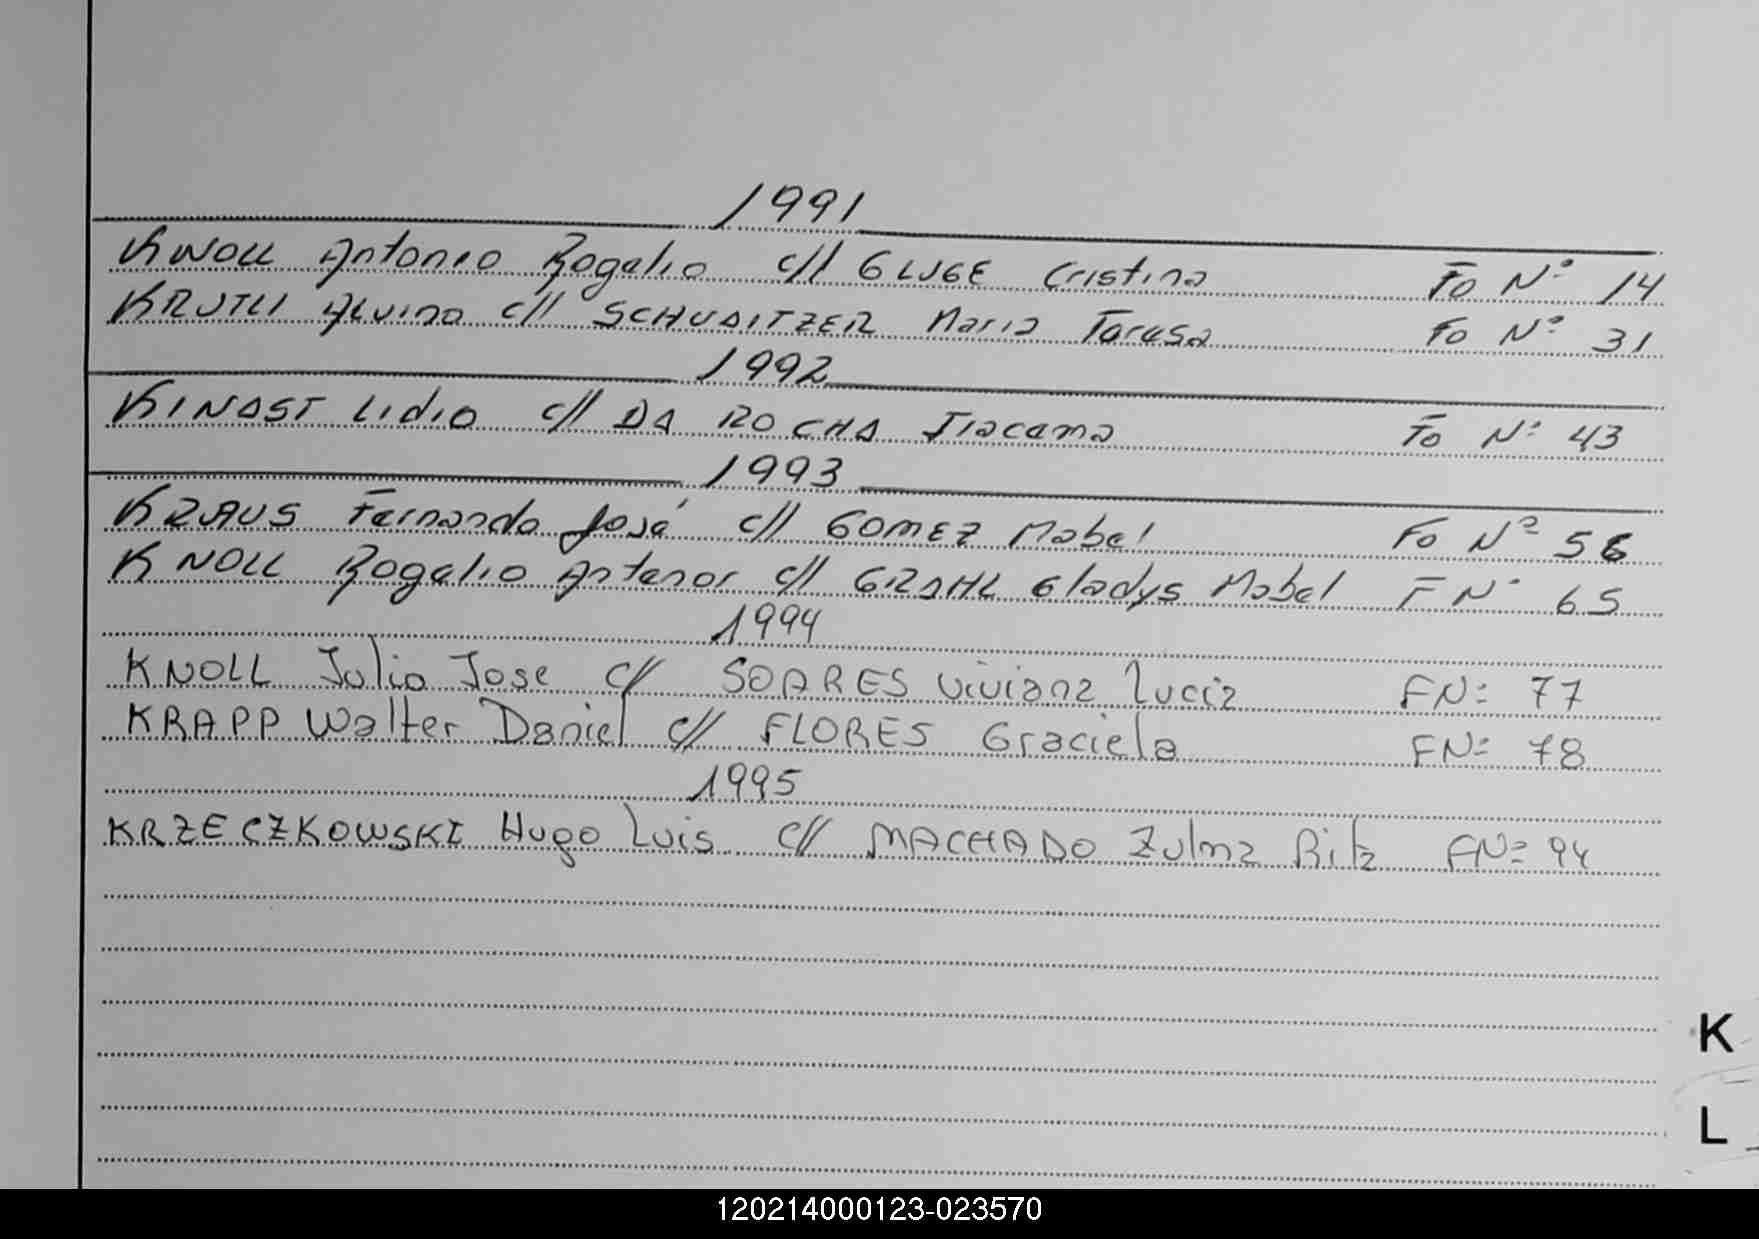 1991
KNOLL Antonio Rogelio c// GLUGE Cristina Fo Nº 14
KRUTLI Alvino c// SCHUDITZER Maria Teresa Fo Nº 31
1992
KINAST Lidio c// DA ROCHA Iracama Fo Nº 43
1993
KRAUS Fernando José c// GOMEZ Mabel Fo Nº 56
KNOLL Rogelio Antenor c// GRAHL Gladys Mabel F Nº 65
1994
KNOLL Julio Jose c// SOARES Viviana Lucia FN: 77
KRAPP Walter Daniel c// FLORES Graciela FN: 78
1995
KRZECZKOWSKI Hugo Luis c// MACHADO Zulma Rita FN: 94
K
L
120214000123-023570